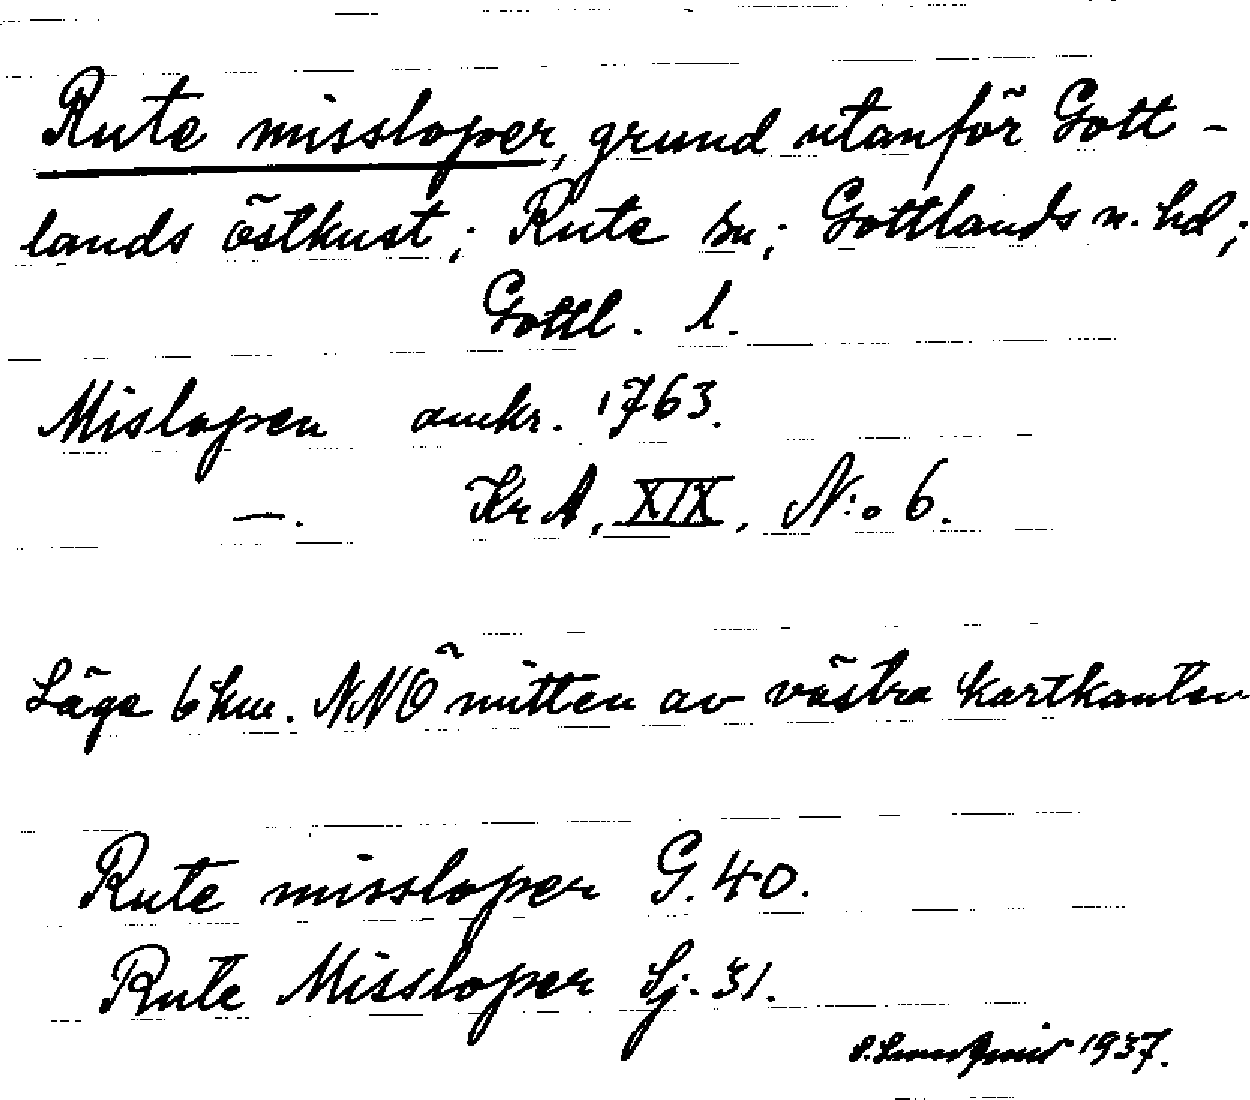 Rute missloper, grund utanför Gott-
lands östkust; Rute sn; Gottlands n. hd;
Gottl. l.
Mislopen omkr. 1763.
—. KrA, XIX, N:o 6.
Läge 6 km. NNÖ mitten av västra kartkanten
Rute missloper G. 40.
Rute Missloper Sj. 31.
1937.